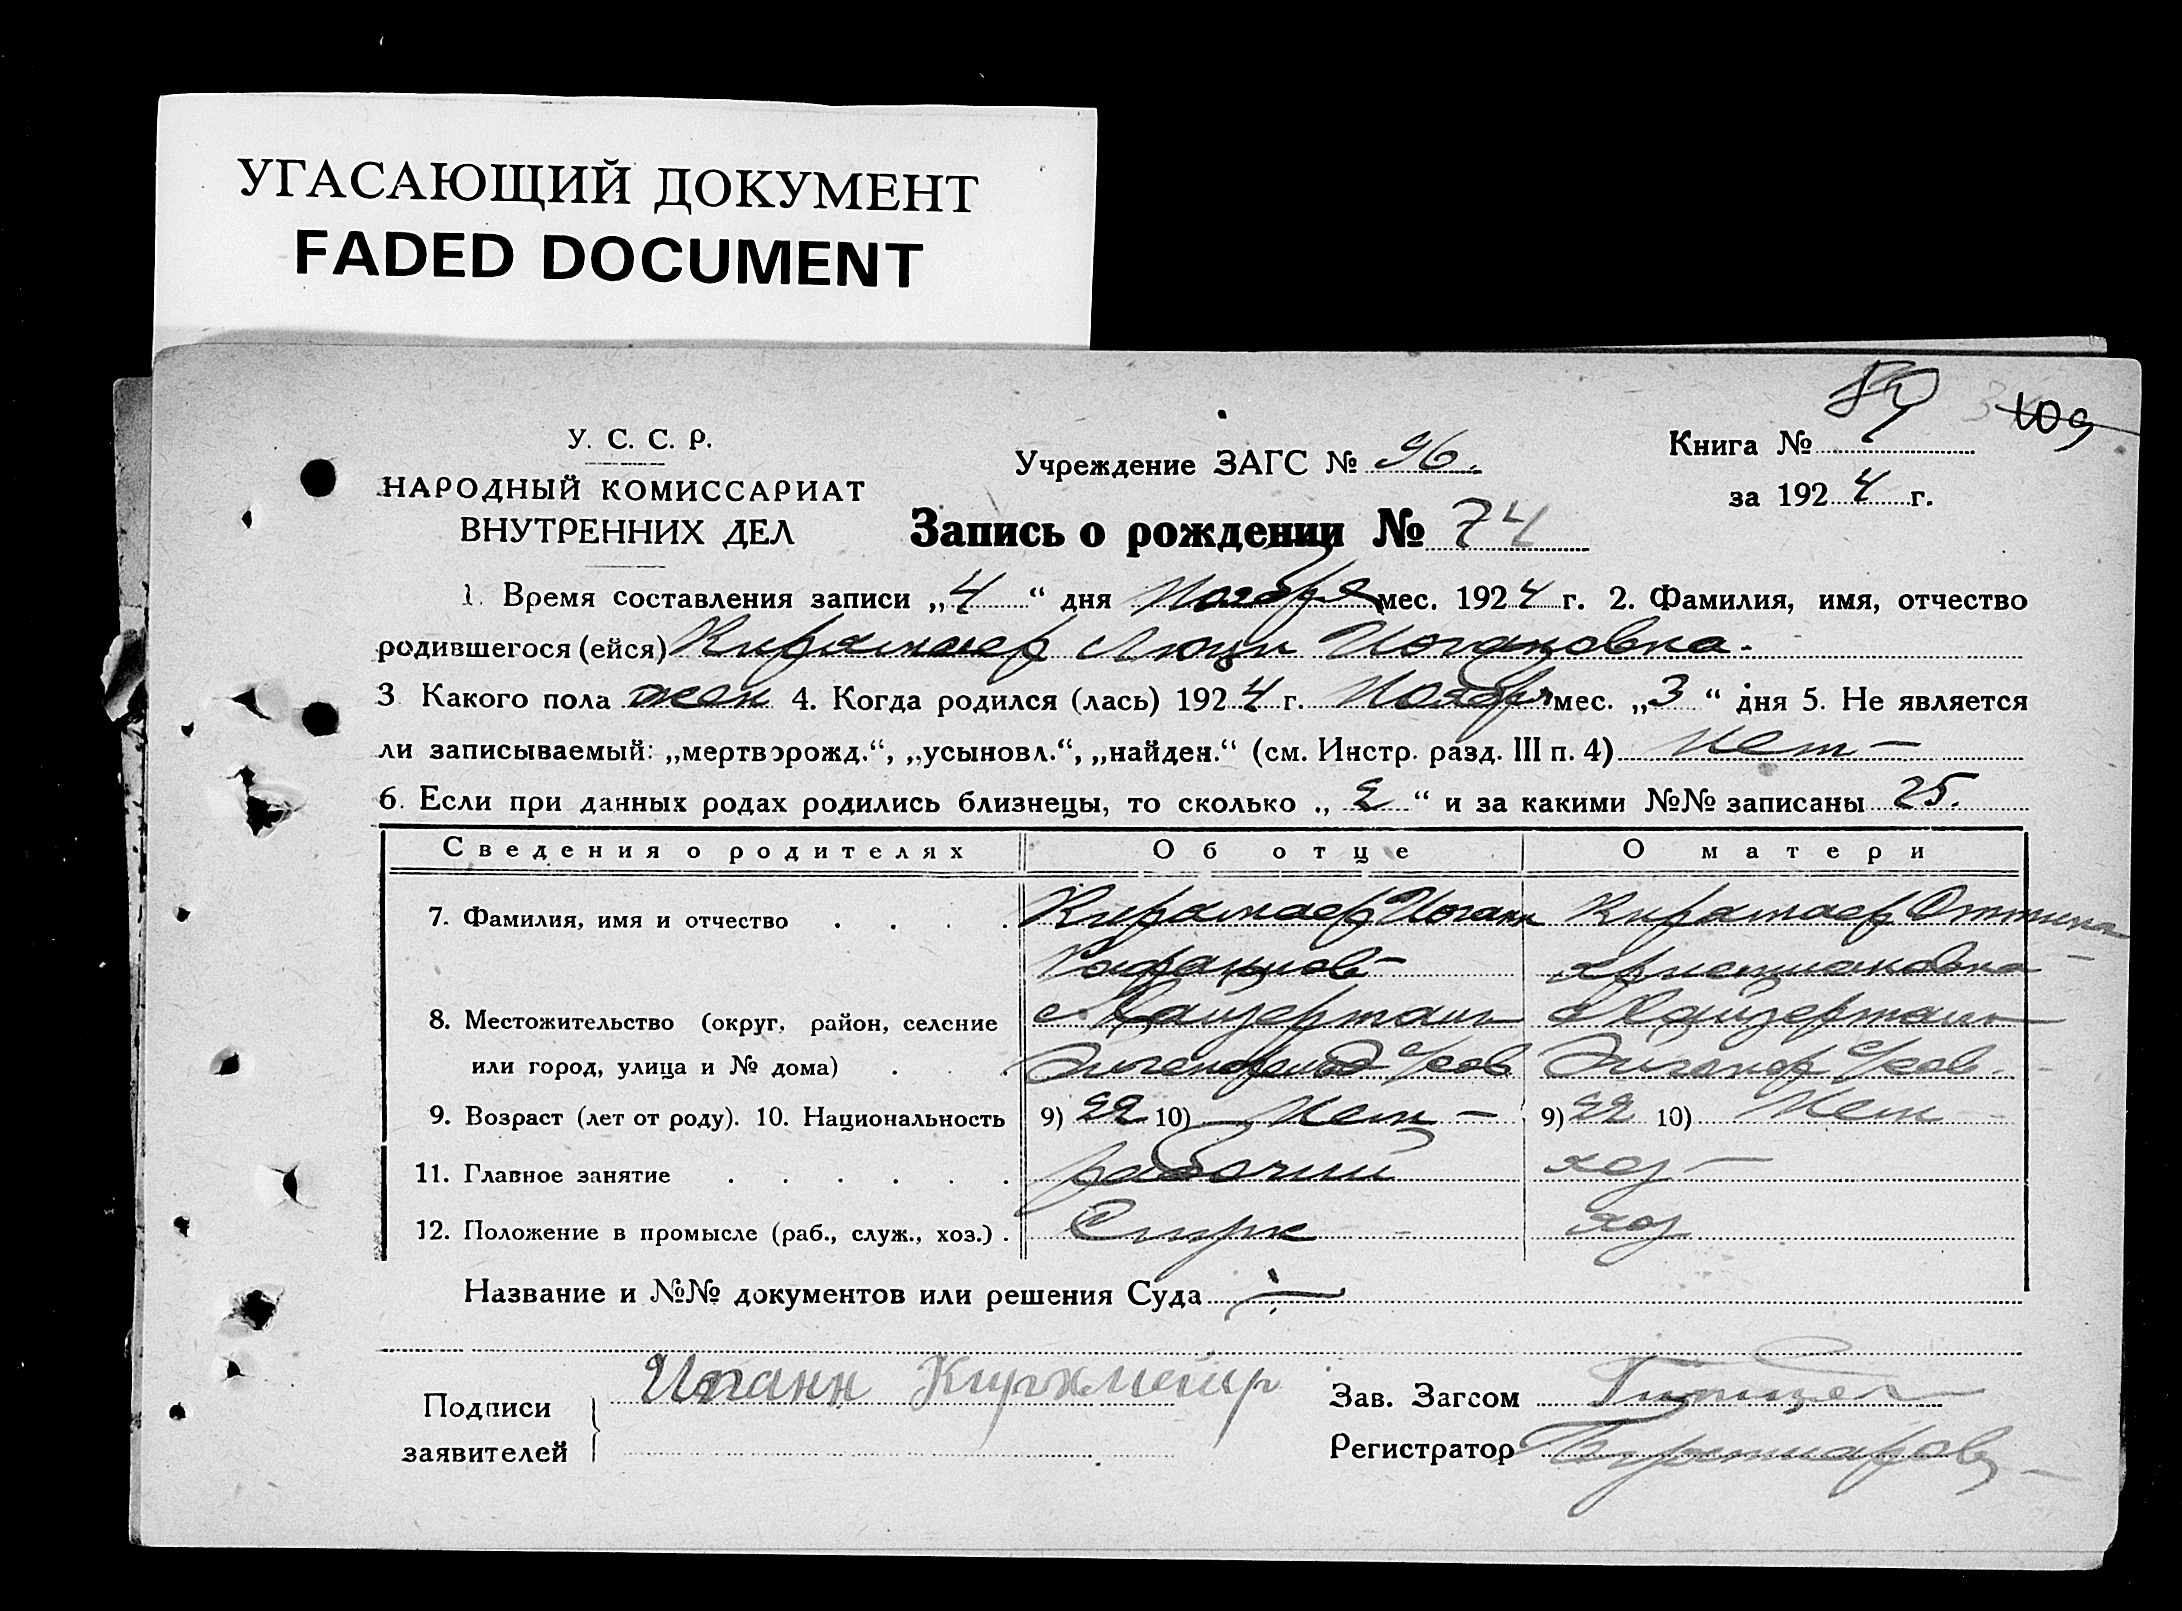 УГАСАЮЩИЙ ДОКУМЕНТ
FADED DOCUMENT
109
У. С. С. Р.
НАРОДНЫЙ КОМИССАРИАТ
ВНУТРЕННИХ ДЕЛ
Учреждение ЗАГС № 96.
Книга №
за 1924 г.
Запись о рождении № 74
1. Время составления записи „4“ дня Ноября мес. 1924 г. 2. Фамилия, имя, отчество
родившегося (ейся) Кирхмаер Люци Иогановна.
3 Какого пола жен 4. Когда родился (лась) 1924 г. Ноября мес. „3“ дня 5. Не является
ли записываемый: „мертворожд.“, „усыновл.“, „найден.“ (см. Инстр. разд. III п. 4) Нет –
6. Если при данных родах родились близнецы, то сколько „2“ и за какими №№ записаны 25.
Сведения о родителях Об отце О матери
7. Фамилия, имя и отчество Кирхмаер Иоганн Кирхмаер
Христиановна
8. Местожительство (округ, район, селение
или город, улица и № дома)
9. Возраст (лет от роду). 10. Национальность 9) 22 10) Нем – 9) 22 10) Нем –
11. Главное занятие рабочий хоз –
12. Положение в промысле (раб., служ., хоз.) хоз
Название и №№ документов или решения Суда
Подписи
заявителей
Иоганн Кирхмейр
Зав. Загсом
Регистратор